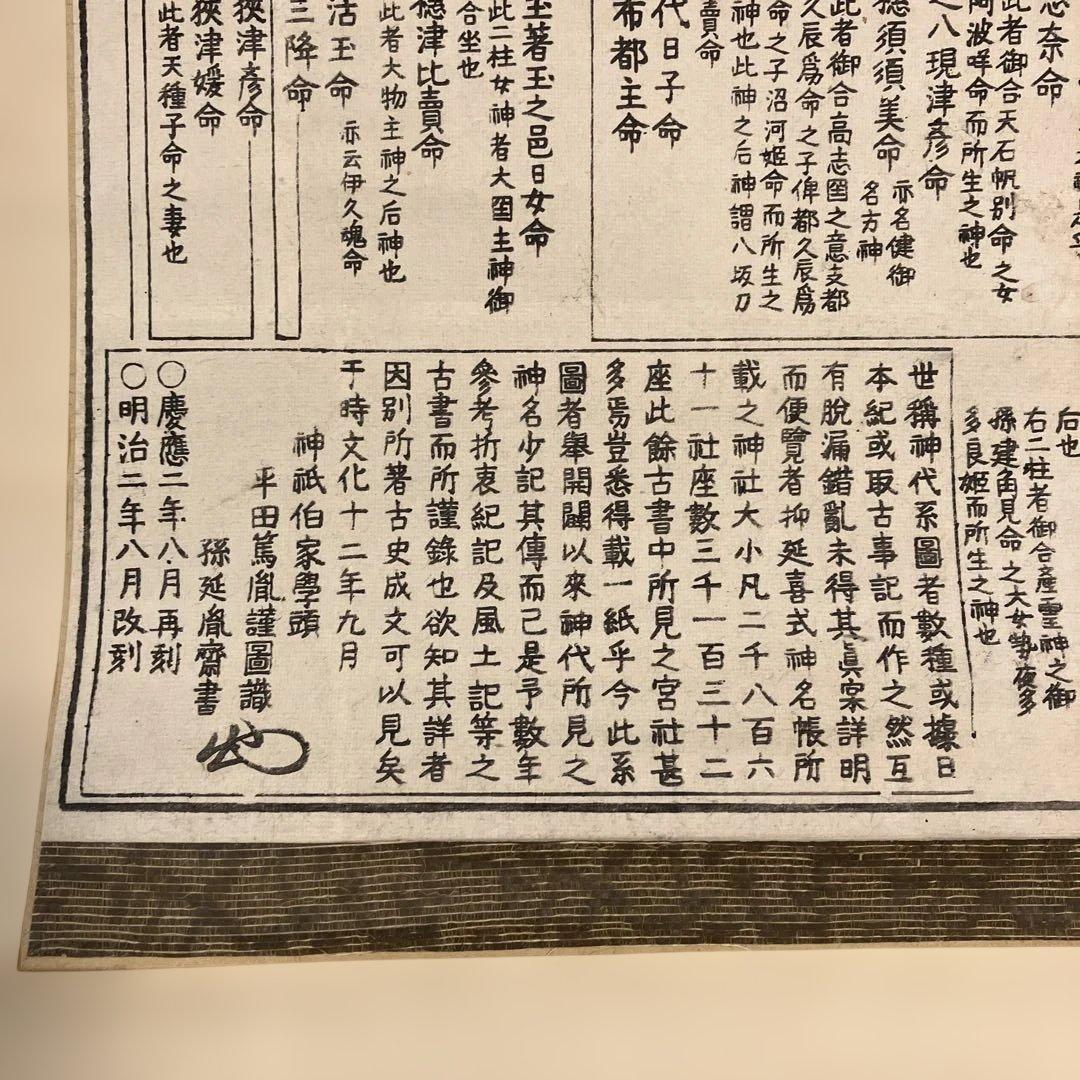 志奈命
此者御合天石帆別命之女
阿波咩命而所生之神也
之八現津彦命
穂須須美命
亦名健御
名方神
此者御合高志圀之意支都
久辰爲命之子俾都久辰爲
命之子沼河姫命而所生之
神也此神之后神謂八坂刀
賣命
代日子命
布都主命
后也
右二柱者御合産霊神之御
孫建角見命之大女勢夜多
多良姫而所生之神也
玉著玉之邑日女命
此二柱女神者大圀主神御
合坐也
穂津比賣命
此者大物主神之后神也
活玉命
亦云伊久魂命
三降命
狭津彦命
狭津媛命
此者天種子命之妻也
世稱神代系圖者數種或據日
本紀或取古事記而作之然互
有脱漏錯亂未得其眞案詳明
而便覧者抑延喜式神名帳所
載之神社大小凡二千八百六
十一社座數三千一百三十二
座此餘古書中所見之宮社甚
多焉豈悉得載一紙乎今此系
圖者擧開闢以來神代所見之
神名少記其傳而已是予數年
參考折衷紀記及風土記等之
古書而所謹錄也欲知其詳者
因別所著古史成文可以見矣
于時文化十二年九月
神祇伯家學頭
平田篤胤謹圖識
孫延胤齋書
〇慶應二年八月再刻
〇明治二年八月改刻